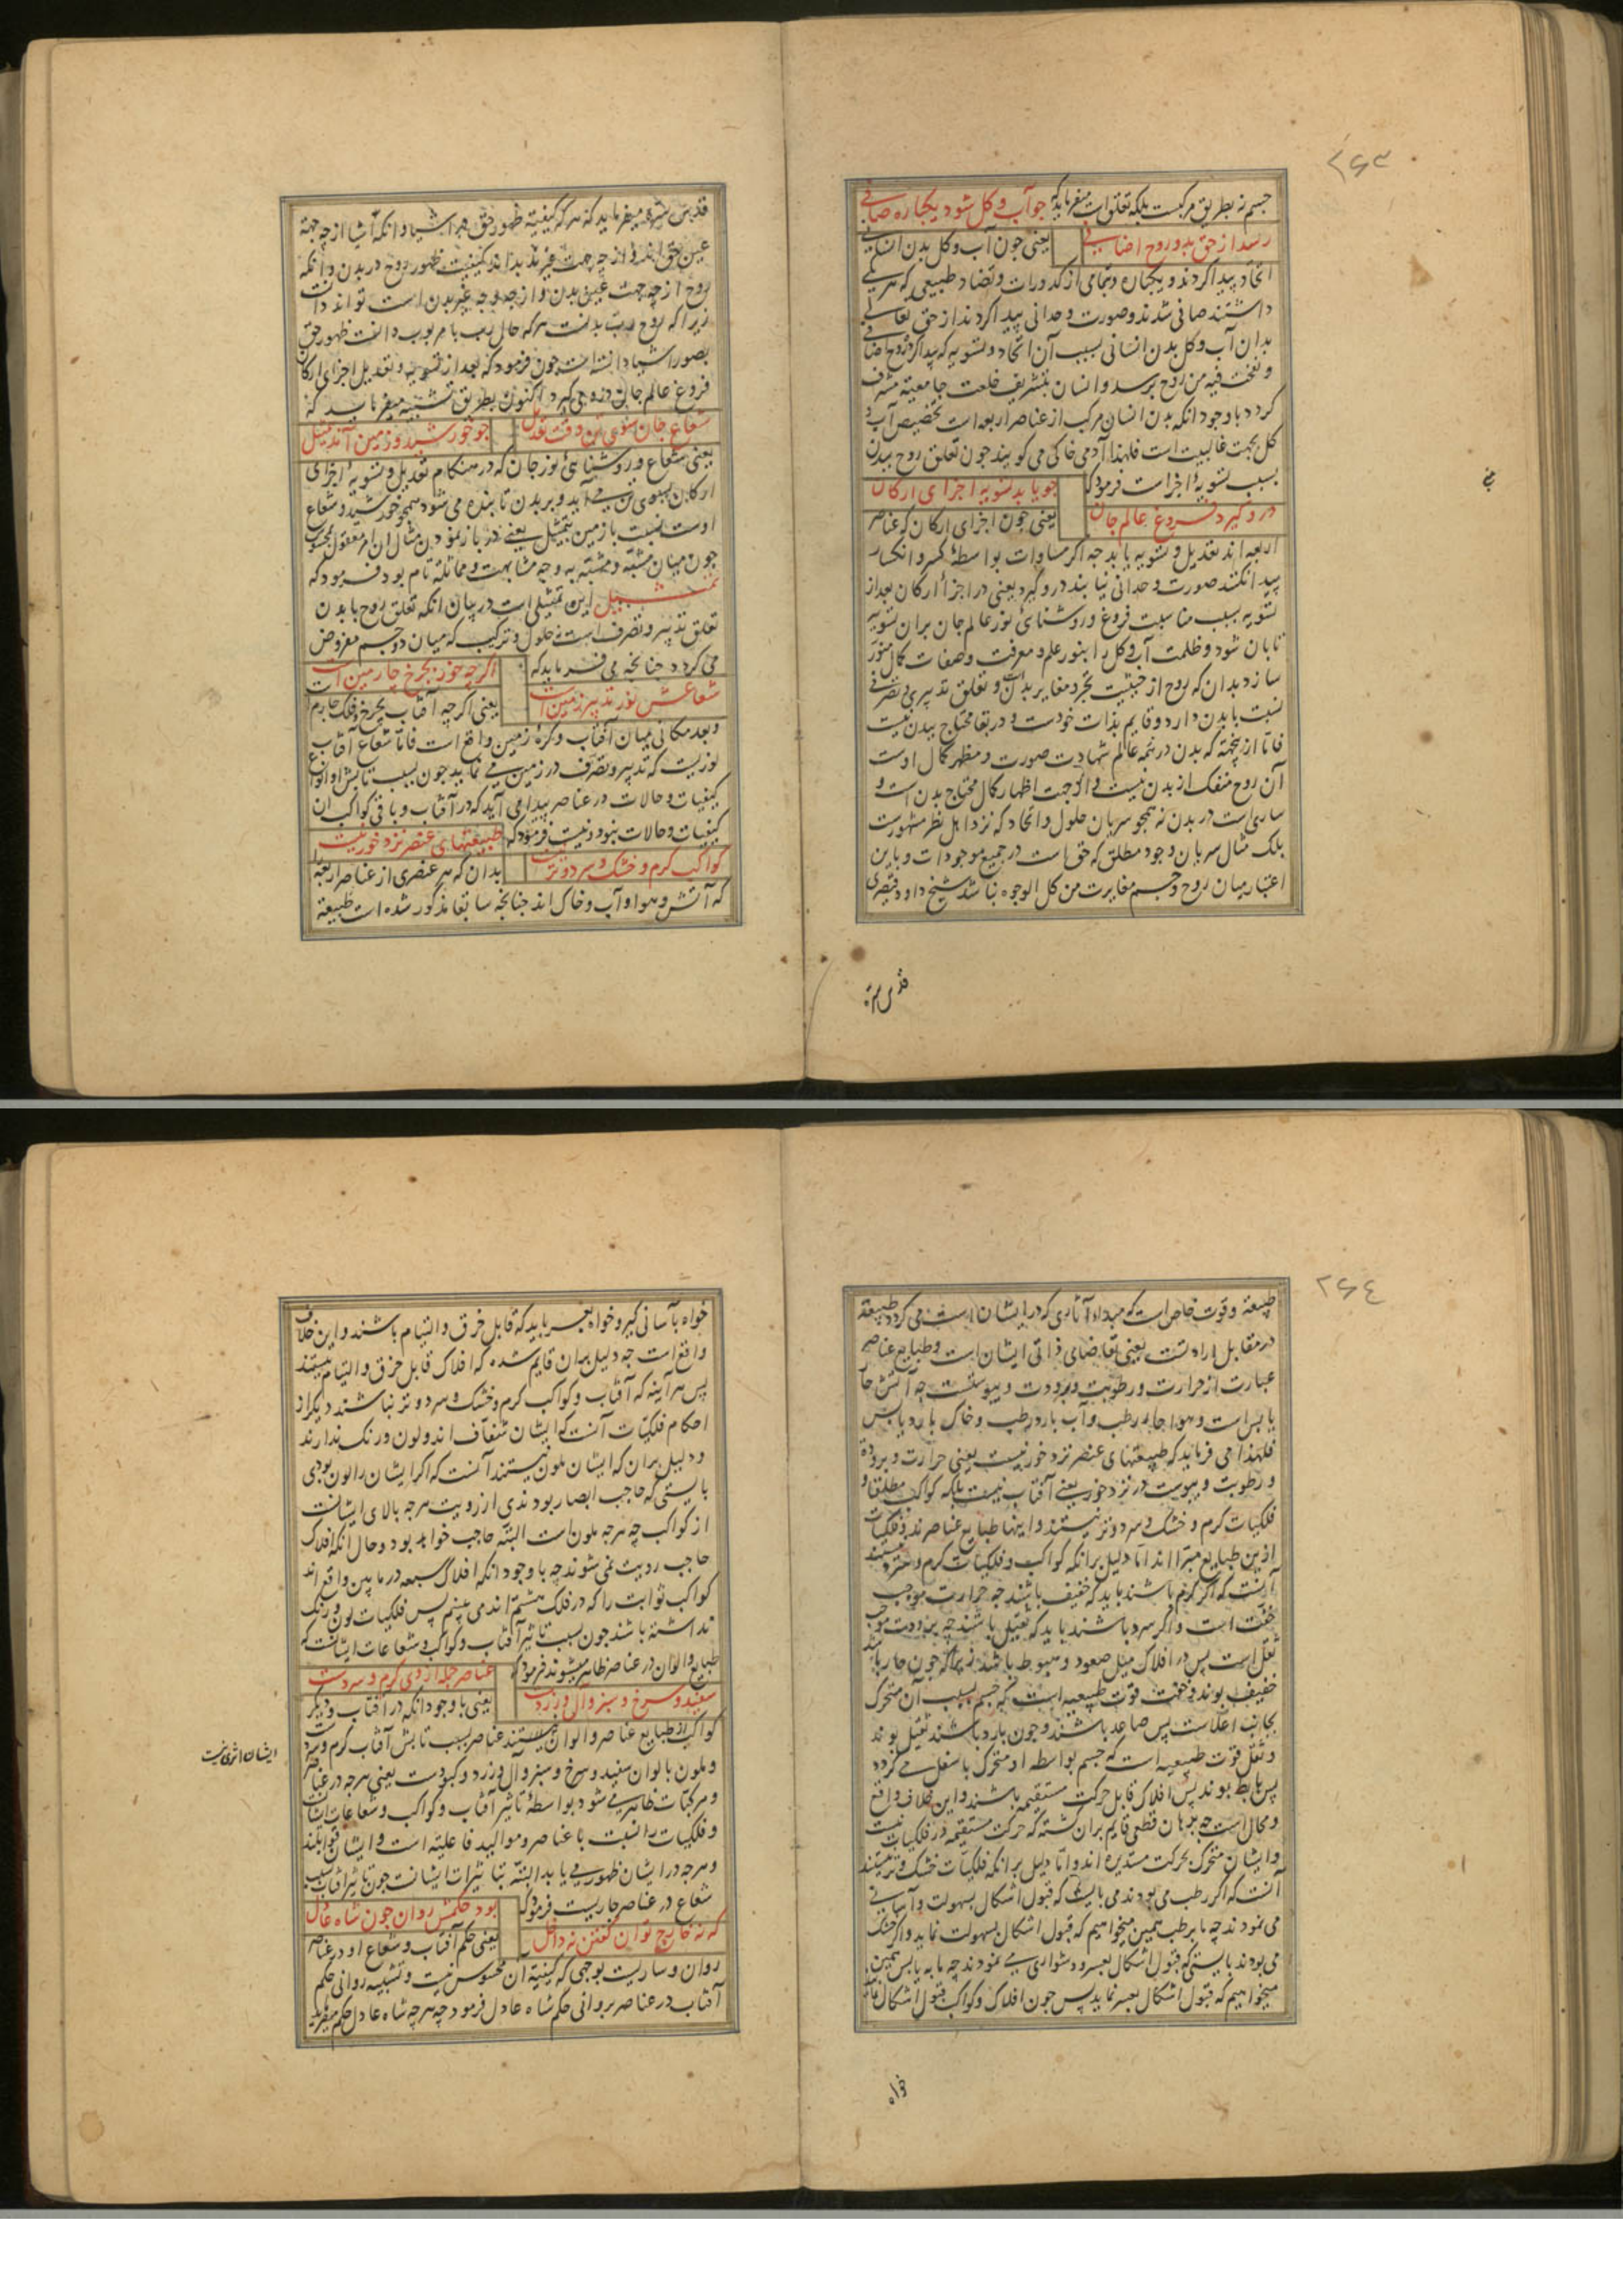 ۲۶۳
جسم نه بطریق مرکبست بلکه تعلق است میفرماید که جو آب و کل شود یکباره صافی
رسد از حق بدو روح اضافی یعنی جون آب و کل بدن انسانی
اتحاد پیدا کردند و یکباره و بتمامی از کدورات و تضاد طبیعی که هر یکی
داشتند صافی شدند و صورت وحدانی پیدا کردند از حق تعالی
بدان آب و کل بدن انسانی بسبب آن اتحاد و تسویه که پیدا کرد روح اضافی
و نفخت فیه من روحی برسد و انسان بتشریف خلعت جامعیة مشرف
کردد با وجود آنکه بدن انسان مرکب از عناصر اربعه است تخصیص آب و
کل بجهت غالبیت است فلهذا آدمی خاکی می کویند جون تعلق روح ببدن
بسبب تسویهٔ اجزاست فرمود که جو یابد تسویه اجزای ارکان
درو کیرد فروغ عالم جان یعنی جون اجزای ارکان که عناصر
اربعه اند تعدیل و تسویه یابد جه اکر مساوات بواسطهٔ کسر و انکسار
پیدا نکنند صورت وحدانی نیابند درو کیرد یعنی در اجزا ارکان بعد از
تسویه بسبب مناسبت فروغ و روشنائی نور عالم جان بران تسویه
تابان شود و ظلمت آب و کل را بنور علم و معرفت و صفات کمال منور
سازد بدان که روح از حیثیت تجرد مغایر بدنست و تعلق تدبیری و تصرفی
نسبت با بدن دارد و قایم بذات خودست و در بقا محتاج ببدن نیست
فاما از ینجهة که بدن در نمه عالم شهادت صورت و مظهر کمال اوست
آن روح منفک از بدن نیست و از جهت اظهار کمال محتاج بدن است و
ساری است در بدن نه همجو سریان حلول و اتحاد که نزد اهل نظر مشهورست
بلک مثال سریان وجود مطلق که حق است در جمیع موجودات و باین
اعتبار میان روح و جسم مغایرت من کل الوجوه نباشد شیخ داود قیصری
قدس سره
قدس سره میفرماید که هر که کیفیة ظهور حق در اشیا و آنکه اشیا از چه جهة
عین حق اند و از چه جهت غیرند بداند کیفیت ظهور روح در بدن و آنکه
روح از چه جهت عین بدن و از چه وجه غیر بدن است تواند دانست
زیرا که روح رب بدنست هر که حال رب با مربوب دانست ظهور حق
بصور اشیا دانسته است جون فرمود که بعد از تسویه و تعدیل اجزای ارکان
فروغ عالم جان درو می کیرد اکنون بطریق تشبیه میفرماید که
شعاع جان سوی تن وقت تعدیل جو خورشید و زمین آمد تمثیل
یعنی شعاع و روشنائی نور جان که در هنکام تعدیل و تسویهٔ اجزای
ارکان بسوی تن می آید و بر بدن تابنده می شود همجو خورشید و شعاع
اوست نسبت با زمین بتمثیل یعنی در باز نمودن مثال آن امر معقول بمحسوس
جون میان مشبه و مشبه به وجه مشابهت و مماثلة تام بود فرمود که
تمثیل این تمثیلی است در بیان آنکه تعلق روح با بدن
تعلق تدبیر و تصرف است نه حلول و ترکیب که میان دو جسم مفروض
می کردد جنانجه می فرماید که اکر جه خور بجرخ جارمین است
شعاعش نور تدبیر زمین است یعنی اکر جه آفتاب بجرخ و فلک جارم
و بعد مکانی میان آفتاب و کرهٔ زمین واقع است فاما شعاع آفتاب
نوریست که تدبیر و تصرف در زمین می نماید جون بسبب تابش او انواع
کیفیات و حالات در عناصر پیدا می آید که در آفتاب و باقی کواکب آن
کیفیات و حالات نبود و نیست فرمود که طبیعتهای عنصر نزد خور نیست
کواکب کرم و خشک و سرد و تر نیست بدان که هر عنصری از عناصر اربعه را
که آتش و هوا و آب و خاک اند جنانجه سابقا مذکور شده است طبیعة
۲۶۴
طبیعة و قوت خاص است که مبداء آثاری که در ایشان است می کردد طبیعة
در مقابل ارادتست یعنی تقاضای ذاتی ایشان است و طبایع عناصر
عبارت از حرارت و رطوبت و برودت و یبوستست چه آتش حار
یابس است و هوا حار رطب و آب بارد رطب و خاک بارد یابس
فلهذا می فرماید که طبیعتهای عنصر نزد خور نیست یعنی حرارت و برودة
و رطوبت و یبوست در نزد خور یعنی آفتاب نیست بلکه کواکب مطلقا و
فلکیات کرم و خشک و سرد و تر نیستند و اینها طبایع عناصرند و فلکیات
ازین طبایع مبرا اند اما دلیل بر آنکه کواکب و فلکیات کرم و سرد نیستند
آنست که اکر کرم باشند باید که خفیف باشند جه حرارت موجب
خفت است و اکر سرد باشند باید که ثقیل باشند چه برودت موجب
ثقل است پس در افلاک میل صعود و هبوط باشد زیرا که جون حار باشد
خفیف بوند و خفت قوت طبیعیه است که جسم بسبب آن متحرک
بجانب اعلاست پس صاعد باشند و جون بارد باشند ثقیل بوند
و ثقل قوت طبیعیه است که جسم بواسطه او متحرک باسفل می کردد
پس هابط بوند پس افلاک قابل حرکت مستقیمه باشند و این خلاف واقع
و محال است چه برهان قطعی قایم بران کشته که حرکت مستقیمه در فلکیات نیست
و ایشان متحرک بحرکت مستدیره اند و اما دلیل بر آنکه فلکیات خشک و تر نیستند
آنست که اکر رطب می بودند می بایست که قبول اشکال بسهولت و آسانی
می نمودند چه ما برطب همین میخواهیم که قبول اشکال بسهولت نماید و اکر خشک
می بودند بایستی که قبول اشکال بعسر و دشواری می نمودند چه ما به یابس همین
میخواهیم که قبول اشکال بعسر نماید پس جون افلاک و کواکب قبول اشکال
خواه
خواه بآسانی کیر و خواه بعسر باید که قابل خرق و التیام باشند و این خلاف
واقع است جه دلیل بران قایم شده که افلاک قابل خرق و التیام نیستند
پس هر آینه که آفتاب و کواکب کرم و خشک و سرد و تر نباشند دیکر از
احکام فلکیات آنست که ایشان شفاف اند و لون و رنک ندارند
و دلیل بران که ایشان ملون نیستند آنست که اکر ایشان را لون بودی
بایستی که حاجب ابصار بودندی از رویت هر جه بالای ایشانست
از کواکب چه هر جه ملون است البته حاجب خواهد بود و حال آنکه افلاک
حاجب رویت نمی شوند چه با وجود آنکه افلاک سبعه در مابین واقع اند
کواکب ثوابت را که در فلک هشتم اند می بینیم پس فلکیات لون و رنک
نداشته باشند جون بسبب تاثیر آفتاب و کواکب و شعاعات ایشانست که
طبایع و الوان در عناصر ظاهر میشوند فرمود که عناصر جمله از وی کرم و سردست
سفید و سرخ و سبز و آل و زرد است یعنی با وجود آنکه در آفتاب و دیکر
کواکب از طبایع عناصر و الوان نیستند عناصر بسبب تابش آفتاب کرم و سرد
ایشان اثری نیست
و ملون بالوان سفید و سرخ و سبز و آل و زرد و کبودست یعنی هر جه در عناصر
و مرکبات ظاهر می شود بواسطهٔ تاثیر آفتاب و کواکب و شعاعات ایشانست
و فلکیات را نسبت با عناصر و موالید فاعلیة است و ایشان قوابلند
و هر جه در ایشان ظهور می یابد البته بتاثیرات ایشانست جون تاثیر آفتاب بسبب
شعاع در عناصر جاریست فرمود که بود حکمش روان جون شاه عادل
که نه خارج توان کفتن نه داخل یعنی حکم آفتاب و شعاع او در عناصر
روان و ساریست بوجهی که کیفیة آن محسوس نیست و تشبیه روانی حکم
آفتاب در عناصر بروانی حکم شاه عادل فرمود چه هر چه شاه عادل حکم میفرماید